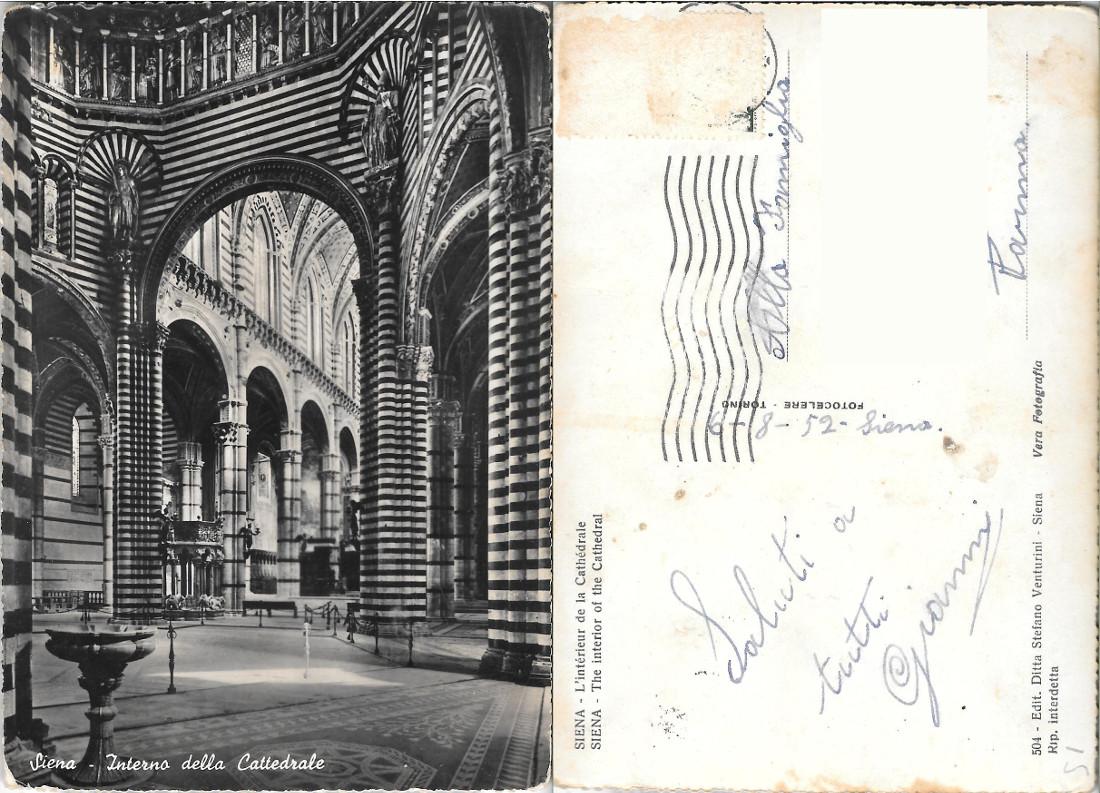 Siena - Interno della Cattedrale
SIENA - L'intérieur de la Cathédrale
SIENA - The interior of the Cathedral
6-8-52- Siena.
Saluti a
tutti
Gianni
FOTOCELERE - TORINO
Famiglia
Parma.
504 - Edit. Ditta Stefano Venturini - Siena Vera Fotografia
Rip. interdetta
51